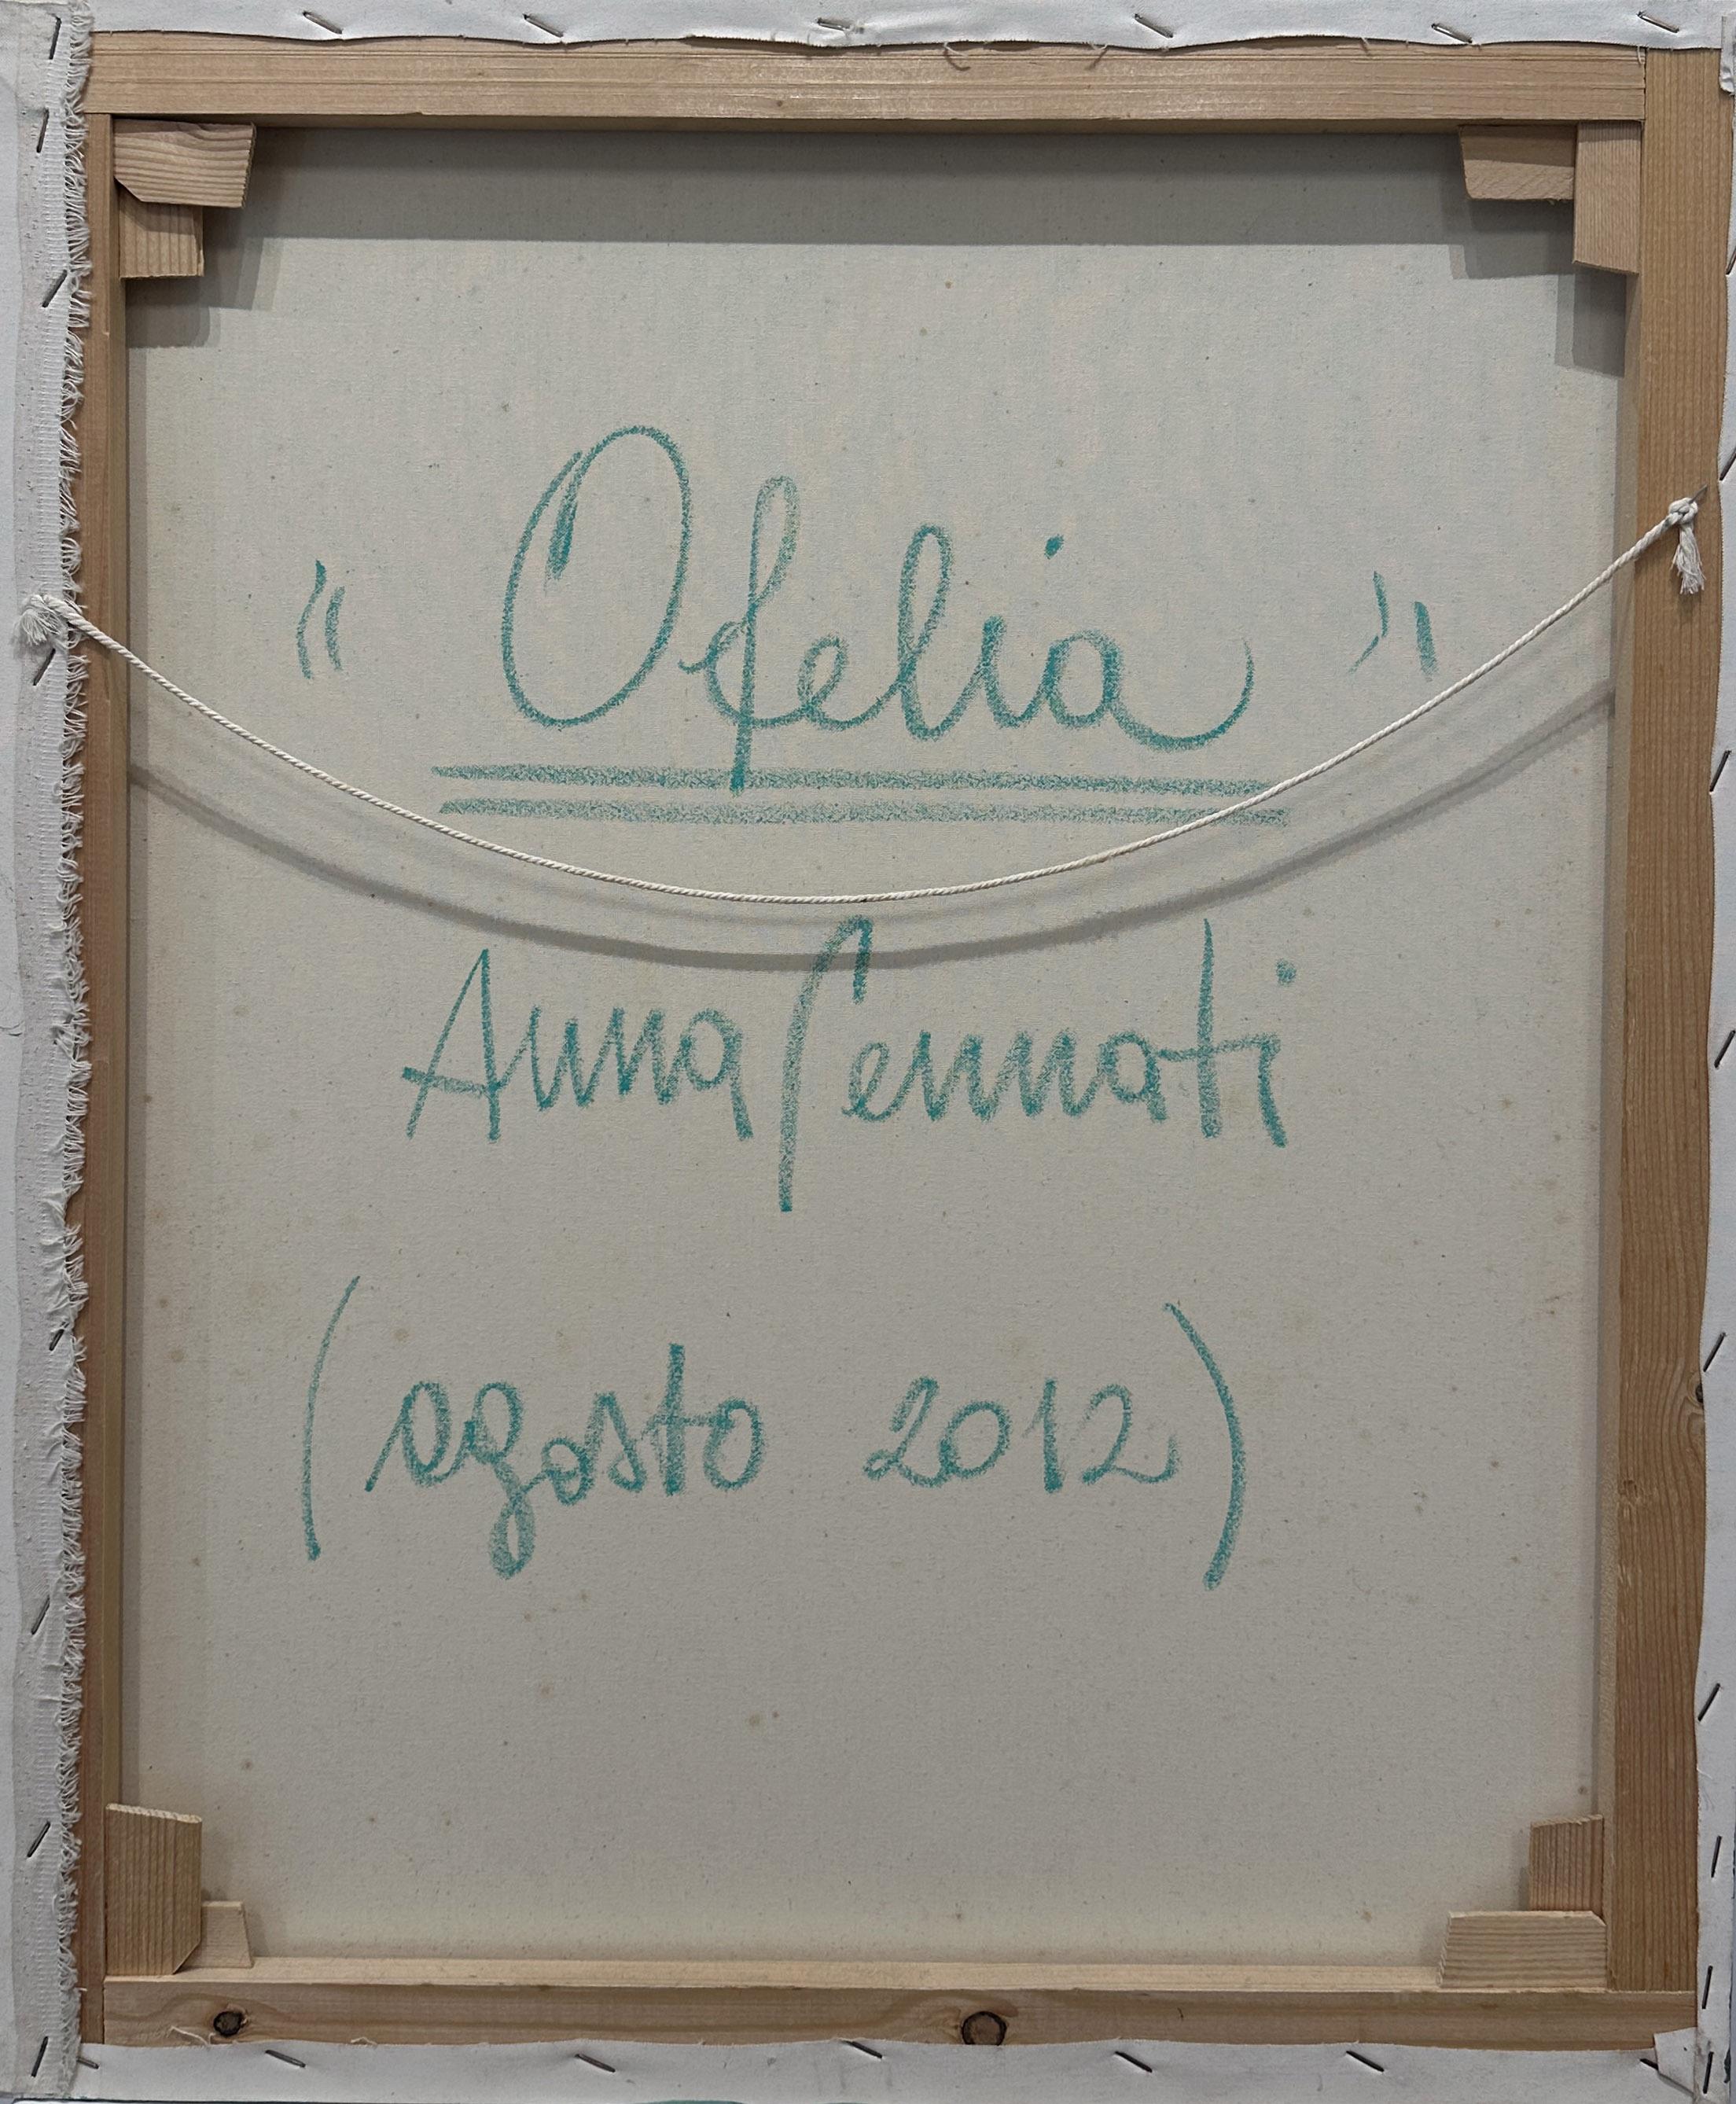 "Ofelia"
Anna Pennati
(agosto 2012)